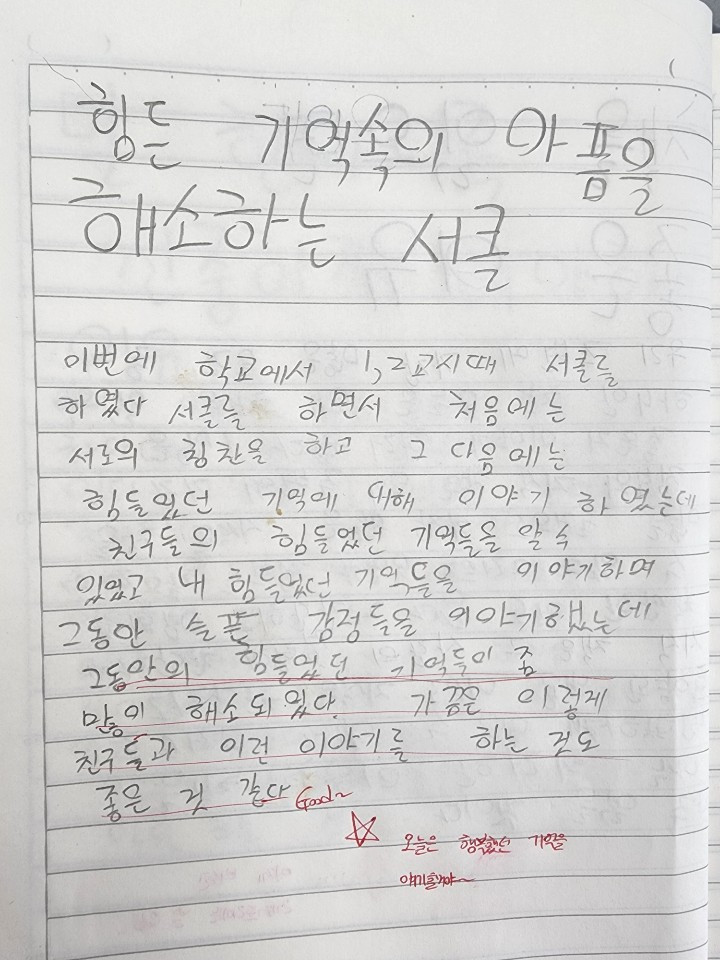 힘든 기억속의 아픔을
해소하는 서클
이번에 학교에서 1,2교시때 서클를
하였다 서클를 하면서 처음에는
서로의 칭찬을 하고 그 다음에는
힘들었던 기억에 대해 이야기 하였는데
친구들의 힘들었던 기억들을 알 수
있었고 내 힘들었던 기억들을 이야기하며
그동안 슬픈 감정들을 이야기했는데
그동안의 힘들었던 기억들이 좀
많이 해소되었다. 가끔은 이렇게
친구들과 이런 이야기를 하는 것도
좋은 것 같다 Good~
오늘은 행복했던 기억을
얘기할거야~